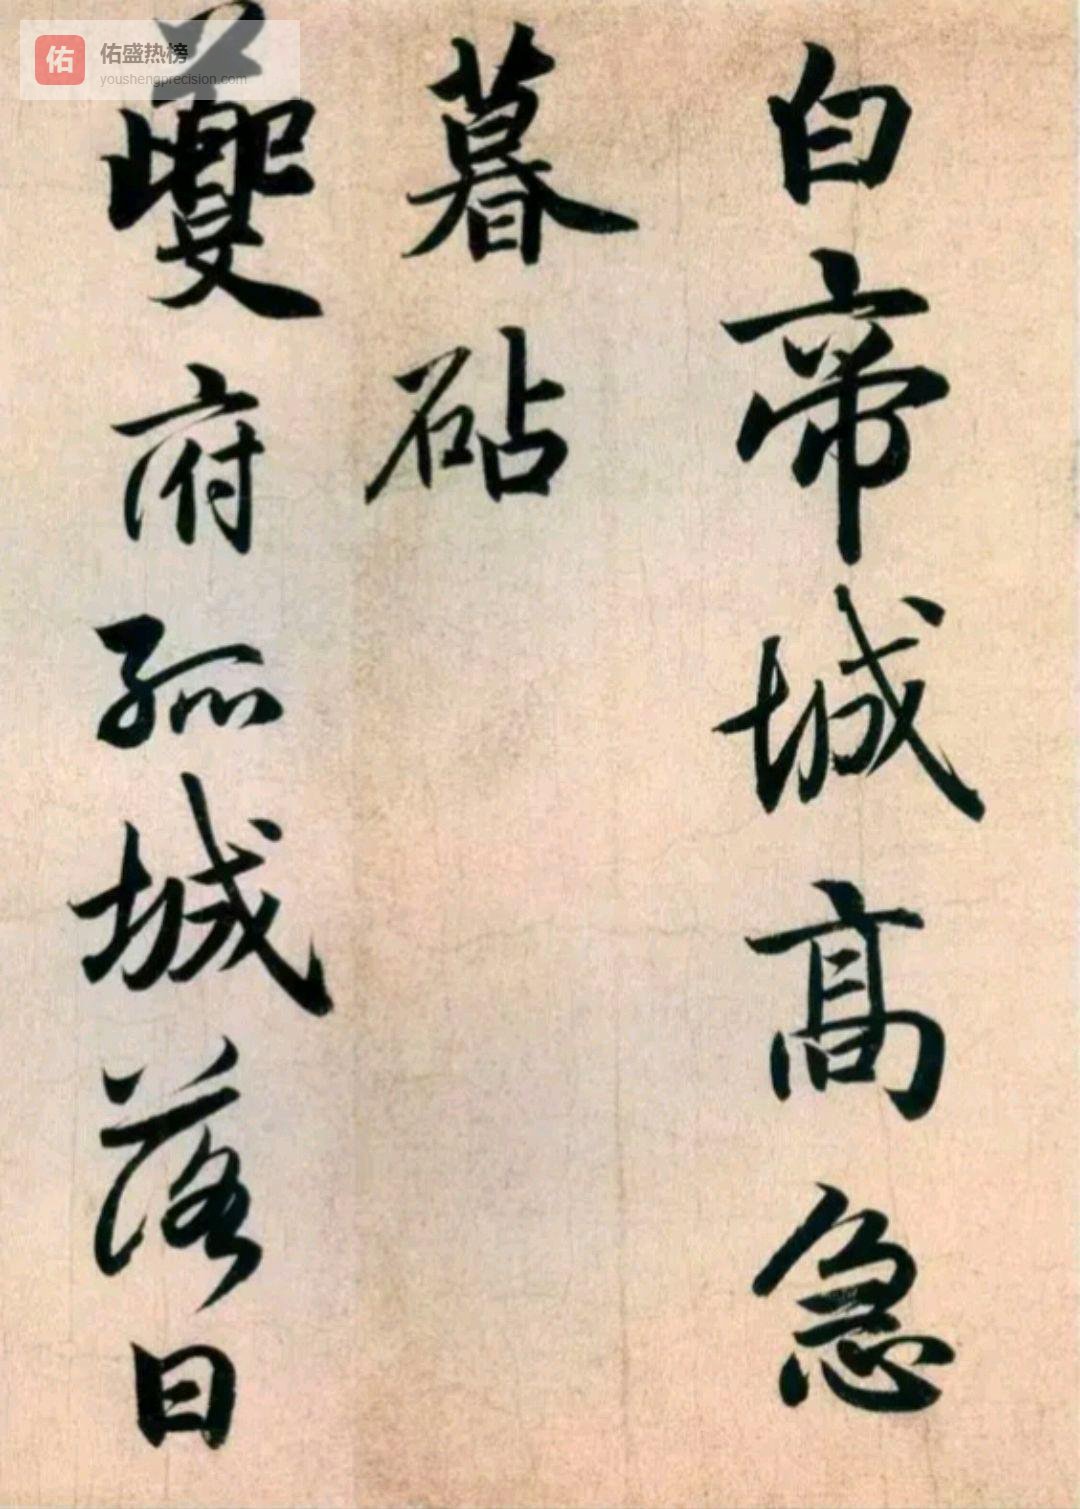 白帝城高急
暮砧
夔府孤城落日
佑
佑盛热榜
youshengprecision.com